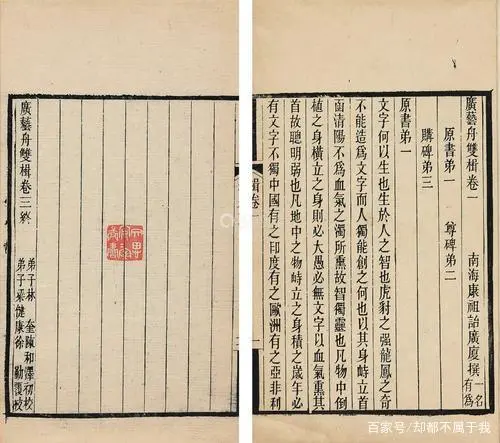 廣藝舟雙楫卷一　南海康祖詒廣廈撰一名有爲
原書弟一　尊碑弟二
購碑弟三
原書弟一
文字何以生也生於人之智也虎豹之强龍鳳之奇
不能造爲文字而人獨能創之何也以其身峙立首
函清陽不爲血氣之濁所熏故智獨靈也凡物中倒
植之身橫立之身則必大愚必無文字以血氣熏其
首故聰明弱也凡地中之物峙立之身積之歲年必
有文字不獨中國有之印度有之歐洲有之亞非利
楫卷
廣藝舟雙楫卷三終
弟子林　奎陳和澤初校
弟子梁健康徐　勤覆校
百家号/却都不属于我